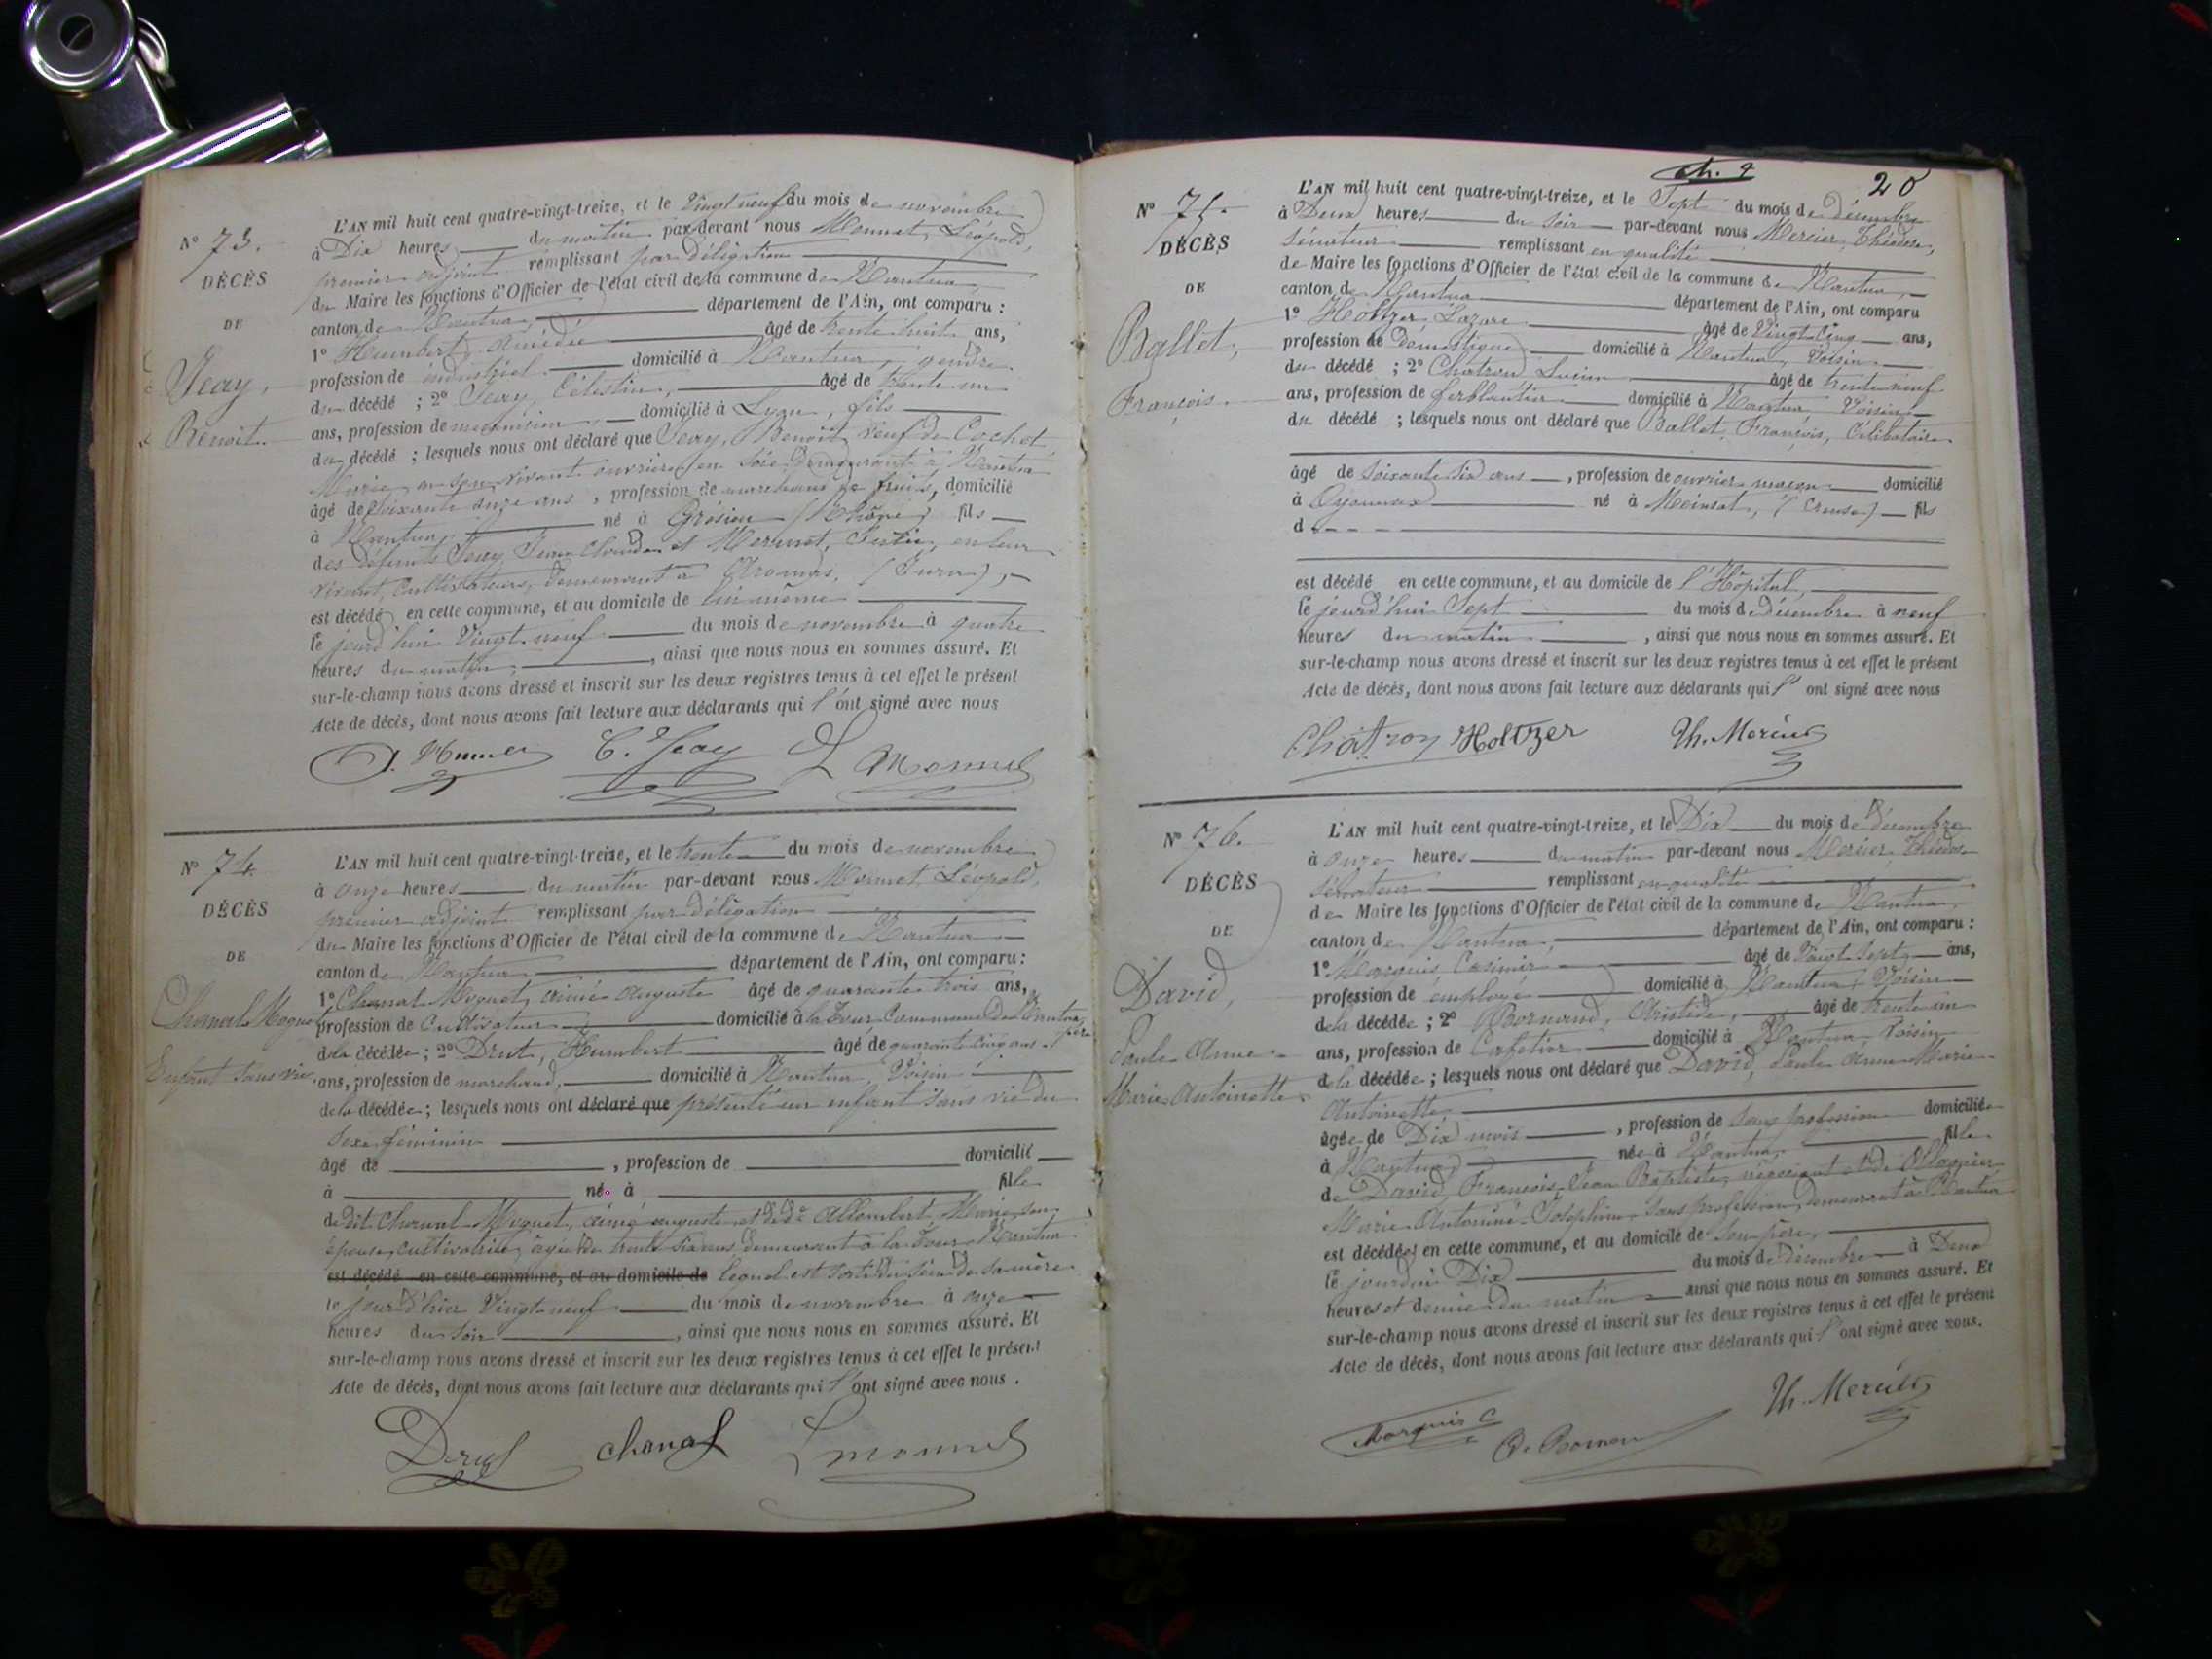 N° 73.
DÉCÈS
DE
Jeay,
Benoit.
L'AN mil huit cent quatre-vingt-treize, et le Vingt neuf du mois de novembre
à Dix heures du matin par-devant nous Monnet, Léopold,
premier adjoint remplissant par délégation
du Maire les fonctions d'Officier de l'état civil de la commune de Nantua
canton de Nantua département de l'Ain, ont comparu :
1° Humbert, Amédée âgé de trente huit ans,
profession de industriel domicilié à Nantua, gendre
du décédé ; 2° Jeay, Célestin, âgé de trente un
ans, profession de mécanicien, domicilié à Lyon, fils
du décédé ; lesquels nous ont déclaré que Jeay, Benoit, veuf de Cochet
Marie, en son vivant ouvrière en soie demeurant à Nantua
âgé de soixante onze ans, profession de marchand de fruits, domicilié
à Nantua, né à Grésieu (Rhône) fils
des défunts Jeay Jean Claude et Mermet, en leur
vivant, cultivateurs, demeurant à Aromas, (Jura),
est décédé en cette commune, et au domicile de lui même
le jourd'hui Vingt neuf du mois de novembre à quatre
heures du matin, ainsi que nous nous en sommes assuré. Et
sur-le-champ nous avons dressé et inscrit sur les deux registres tenus à cet effet le présent
Acte de décès, dont nous avons fait lecture aux déclarants qui l'ont signé avec nous
C. Jeay L Monnet
N° 74.
DÉCÈS
DE
Chanal-Moguet
Enfant sans vie.
L'AN mil huit cent quatre-vingt-treize, et le trente du mois de novembre
à onze heures du matin par-devant nous Monnet, Léopold,
premier adjoint remplissant par délégation
du Maire les fonctions d'Officier de l'état civil de la commune de Nantua
canton de Nantua département de l'Ain, ont comparu :
1° Chanal-Moguet, Aimé Auguste âgé de quarante trois ans,
profession de Cultivateur domicilié à la Tour Commune de Nantua, père
de la décédée ; 2° Drut, Humbert âgé de quarante cinq ans
ans, profession de marchand, domicilié à Nantua, Voisin
de la décédée ; lesquels nous ont déclaré que présenté un enfant sans vie du
Sexe féminin
âgé de , profession de domicilié
à né à fille
de dit Chanal-Moguet, aimé auguste et de de Allombert, Marie, son
épouse, cultivatrice, âgée de trente six ans, demeurant à la Tour Nantua
est décédé en cette commune, et au domicile de lequel est sorti du sein de sa mère
le jour d'hier Vingt neuf du mois de novembre à onze
heures du soir, ainsi que nous nous en sommes assuré. Et
sur-le-champ nous avons dressé et inscrit sur les deux registres tenus à cet effet le présent
Acte de décès, dont nous avons fait lecture aux déclarants qui l'ont signé avec nous.
Drut chanal L monnet
20
N° 75.
DÉCÈS
DE
Ballet,
François.
L'AN mil huit cent quatre-vingt-treize, et le Sept du mois de Décembre
à Deux heures du soir par-devant nous Mercier, Théodore,
Sénateur remplissant en qualité
de Maire les fonctions d'Officier de l'état civil de la commune de Nantua,
canton de Nantua département de l'Ain, ont comparu
1° Holtzer Lazare âgé de Vingt-Cinq ans,
profession de Domestique domicilié à Nantua, Voisin
du décédé ; 2° Chatron Lucien âgé de trente neuf
ans, profession de ferblantier domicilié à Nantua, Voisin
du décédé ; lesquels nous ont déclaré que Ballet, François, Célibataire
âgé de soixante six ans, profession de ouvrier maçon domicilié
à Oyonnax né à Mainsat, (Creuse) fils
d
est décédé en cette commune, et au domicile de l'Hôpital,
le jourd'hui Sept du mois de Décembre à neuf
heures du matin, ainsi que nous nous en sommes assuré. Et
sur-le-champ nous avons dressé et inscrit sur les deux registres tenus à cet effet le présent
Acte de décès, dont nous avons fait lecture aux déclarants qui l'ont signé avec nous
Chatron Holtzer Th. Mercier
N° 76.
DÉCÈS
DE
David,
Paule Anne
Marie Antoinette
L'AN mil huit cent quatre-vingt-treize, et le Dix du mois de Décembre
à onze heures du matin par-devant nous Mercier Théodore
Sénateur remplissant en qualité
de Maire les fonctions d'Officier de l'état civil de la commune de Nantua,
canton de Nantua, département de l'Ain, ont comparu :
1° Marquis Casimir âgé de Vingt-Sept ans,
profession de employé domicilié à Nantua, Voisin
de la décédée ; 2° Bornand, Aristide, âgé de trente un
ans, profession de Cafetier domicilié à Nantua, Voisin
de la décédée ; lesquels nous ont déclaré que David, Paule Anne Marie
Antoinette,
âgée de Dix mois, profession de sans profession domiciliée
à Nantua, née à Nantua, fille
de David, François-Jean Baptiste, négociant et de
Marie Antoinine-Joséphine, sans profession, demeurant à Nantua
est décédée en cette commune, et au domicile de son père,
le jourdhui Dix du mois de décembre à Deux
heures et demie du matin ainsi que nous nous en sommes assuré. Et
sur-le-champ nous avons dressé et inscrit sur les deux registres tenus à cet effet le présent
Acte de décès, dont nous avons fait lecture aux déclarants qui l'ont signé avec nous.
Marquis C Th. Mercier